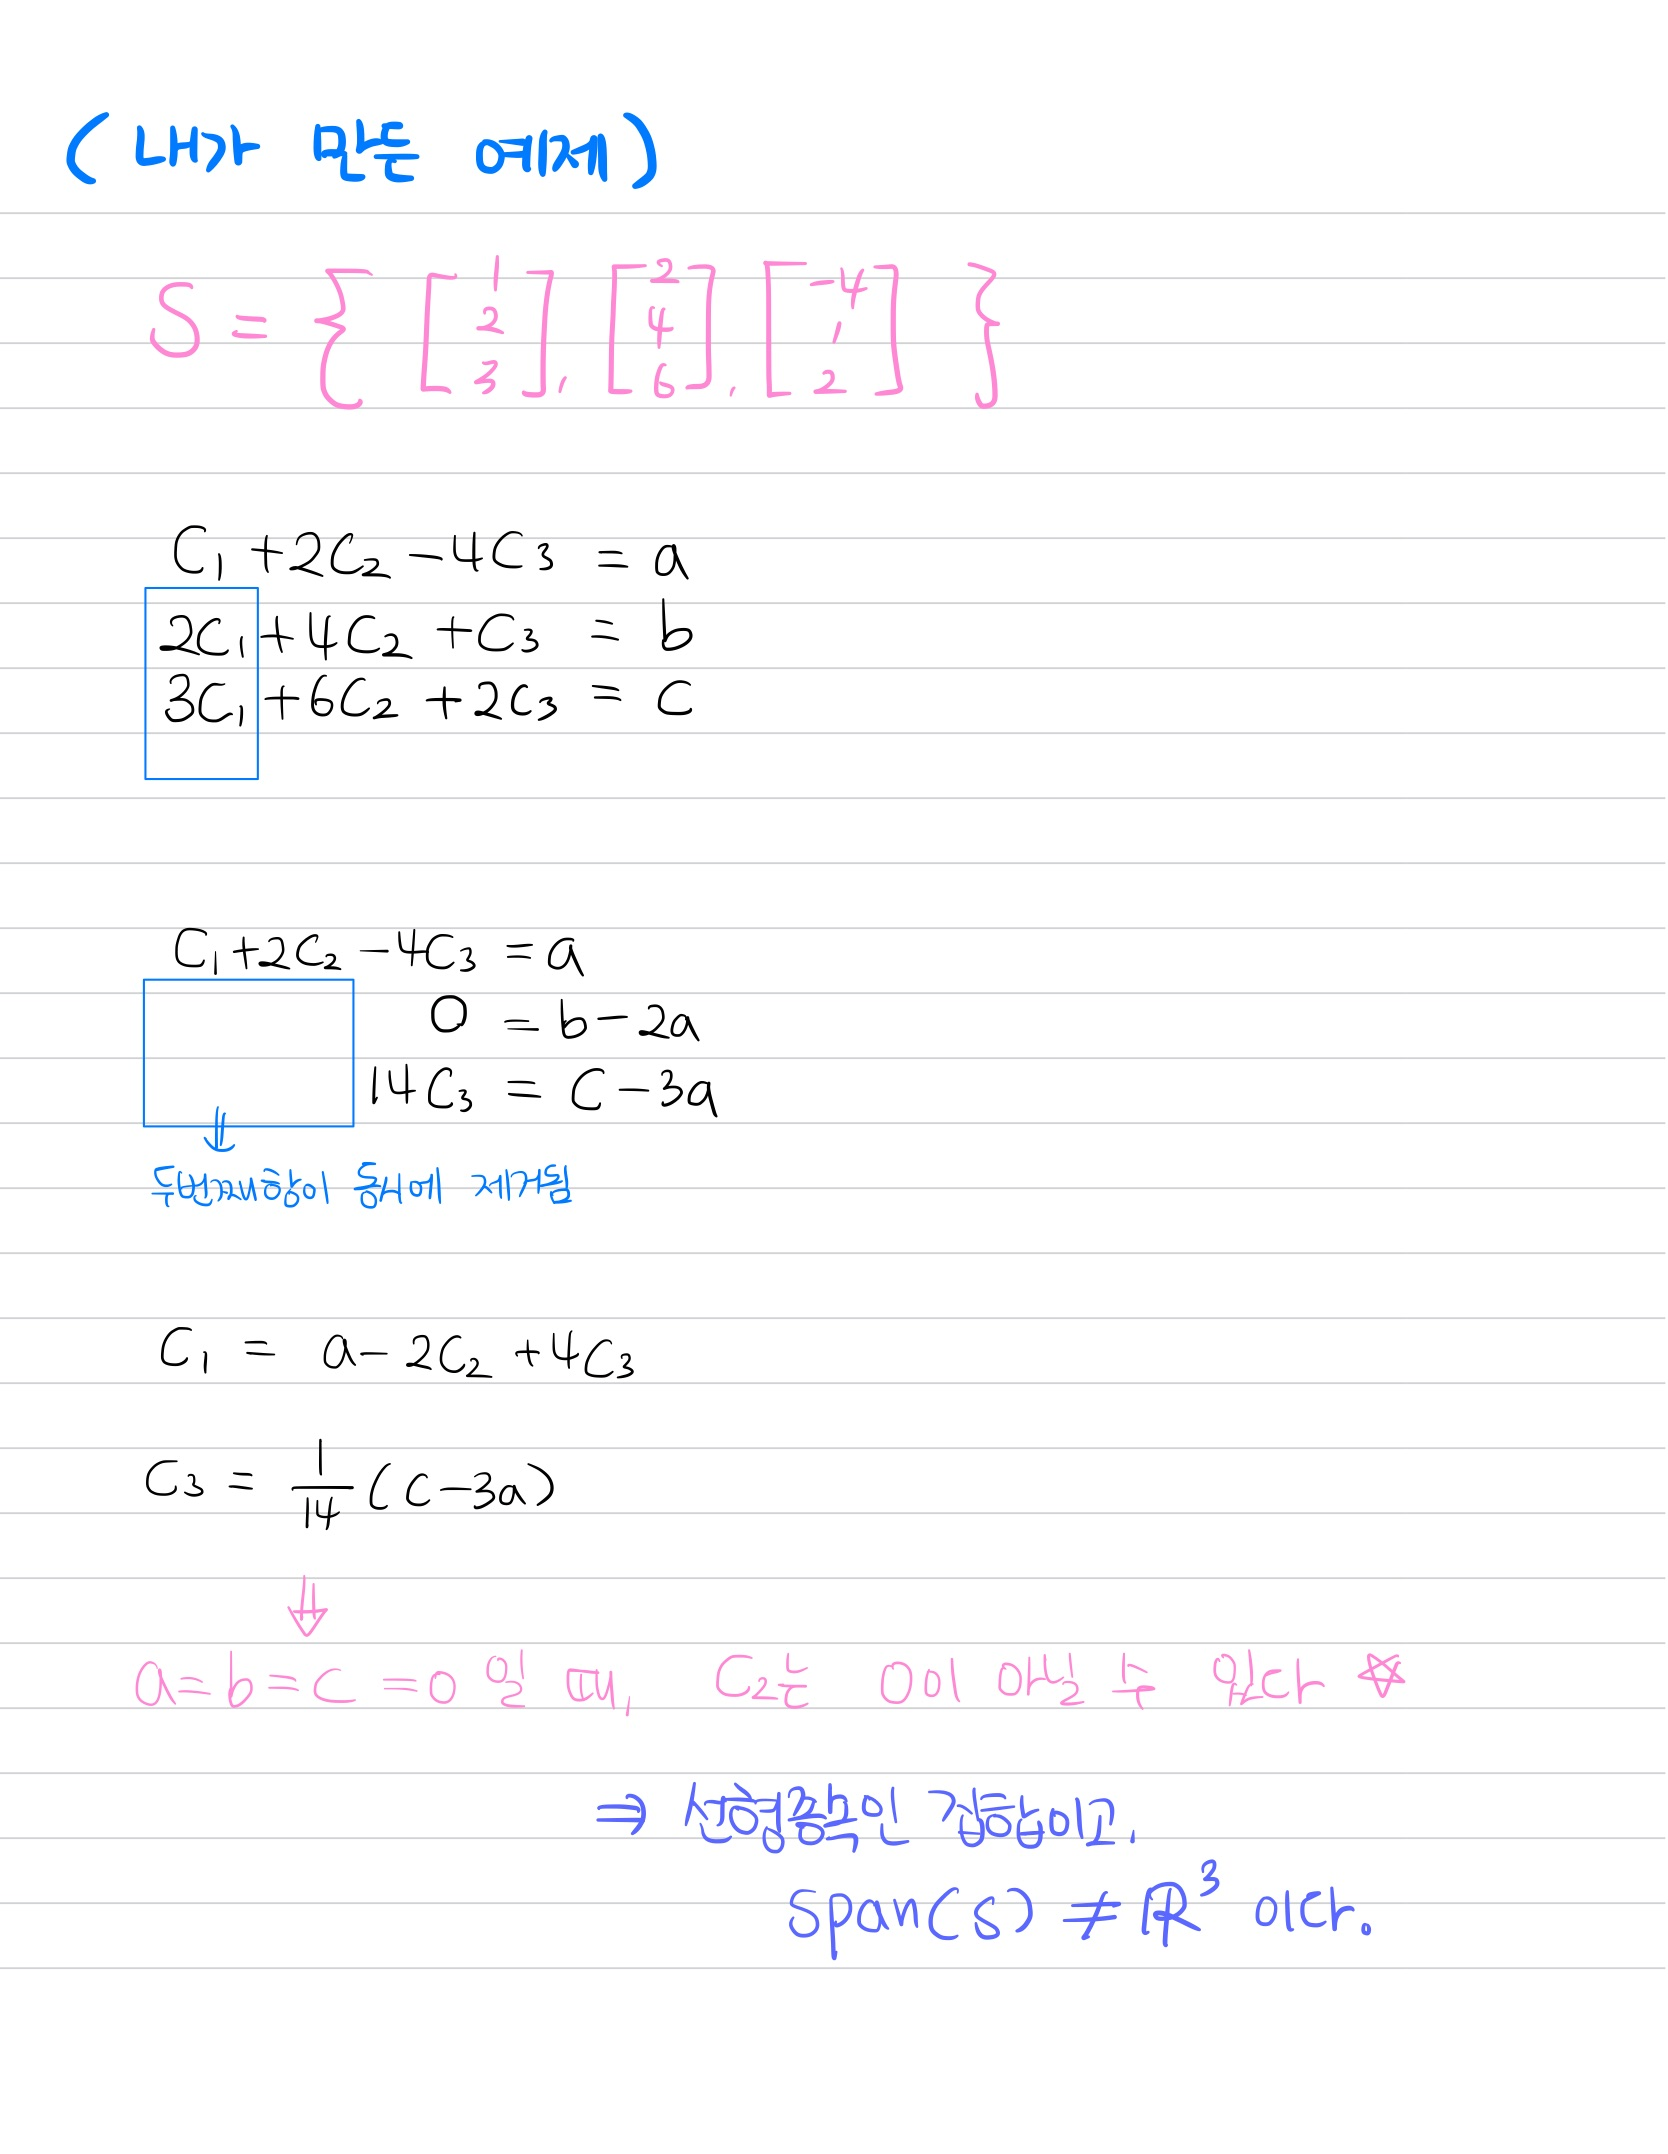 (내가 만든 예제)
S = { [1 2 3], [2 4 6], [-4 1 2] }
C₁ + 2C₂ - 4C₃ = a
2C₁ + 4C₂ + C₃ = b
3C₁ + 6C₂ + 2C₃ = C
C₁ + 2C₂ - 4C₃ = a
0 = b - 2a
14C₃ = C - 3a
두번째항이 동시에 제거됨
C₁ = a - 2C₂ + 4C₃
C₃ = 1/14 (C - 3a)
⇓
a = b = c = 0 일 때, C₂는 0이 아닐 수 있다 ☆
⇒ 선형종속인 집합이고,
Span(S) ≠ ℝ³ 이다.